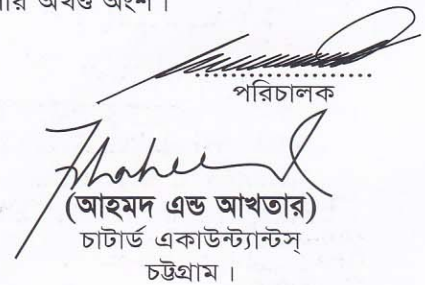 অখণ্ড অংশ।
পরিচালক
(আহমদ এন্ড আখতার)
চাটার্ড একাউন্ট্যান্টস্
চট্টগ্রাম।